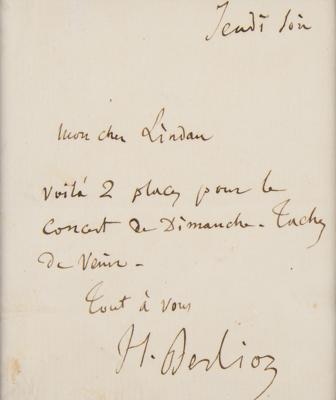 Jeudi soir
Mon cher Lindau
voilà 2 places pour le
concert de Dimanche. Tachez
de venir.
Tout à vous
H. Berlioz